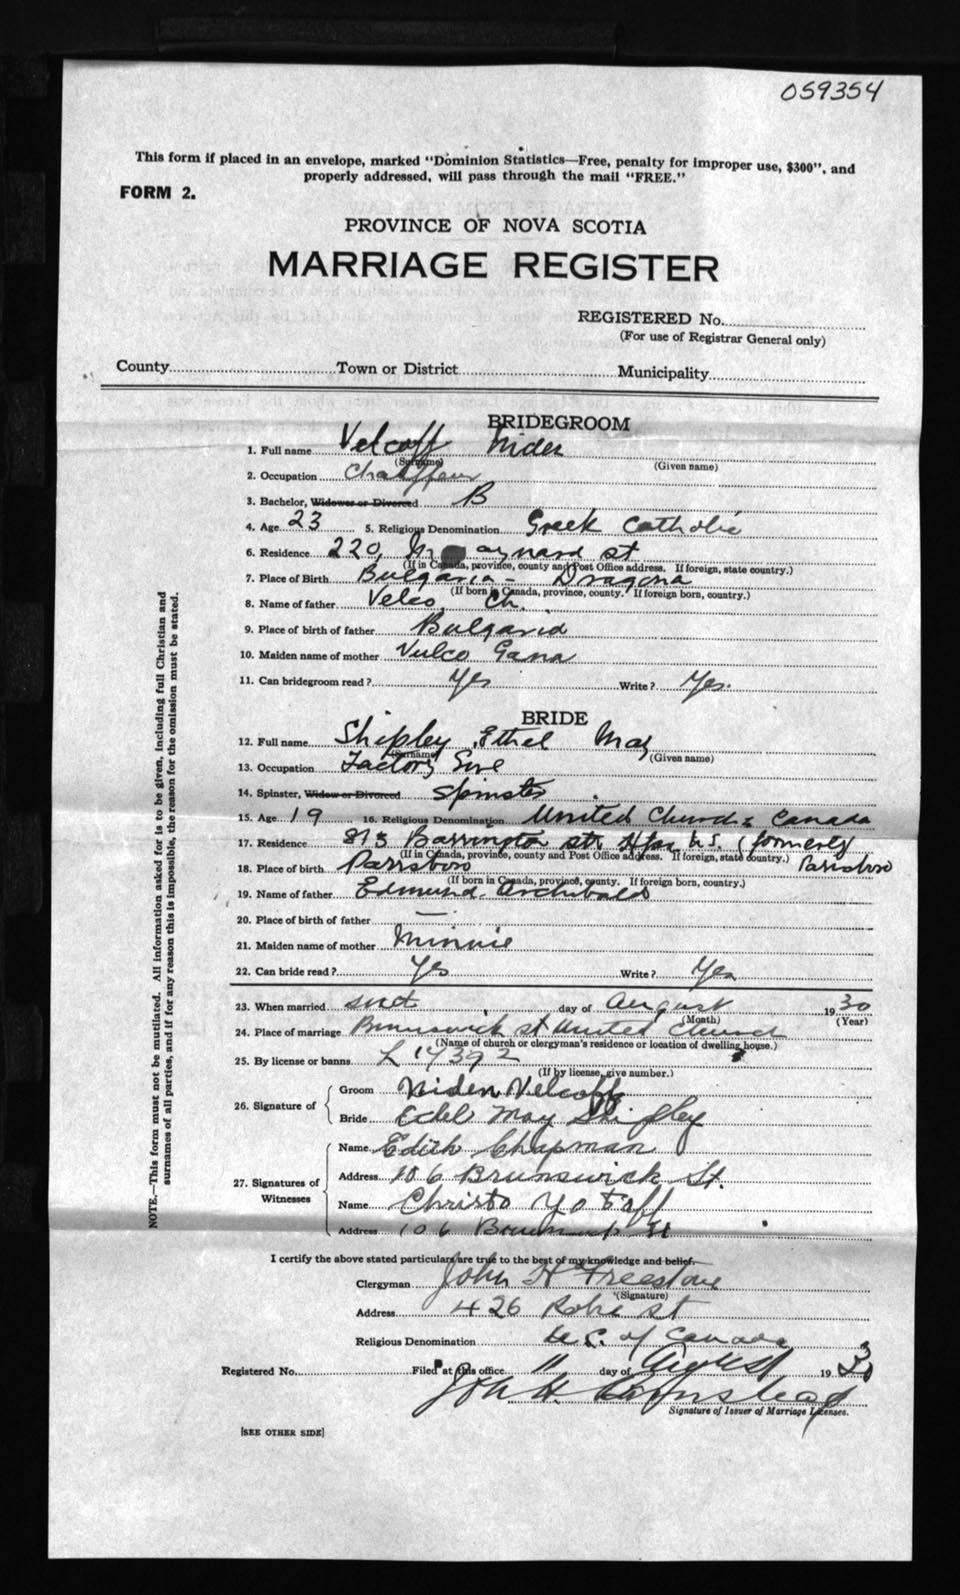 059354
This form if placed in an envelope, marked "Dominion Statistics—Free, penalty for improper use, $300", and
properly addressed, will pass through the mail "FREE."
FORM 2.
PROVINCE OF NOVA SCOTIA
MARRIAGE REGISTER
REGISTERED No.
(For use of Registrar General only)
County Town or District Municipality
BRIDEGROOM
1. Full name Velcoff Niden
(Surname) (Given name)
2. Occupation Chauffeur
3. Bachelor, Widower or Divorced B
4. Age 23 5. Religious Denomination Greek Catholic
6. Residence 220, Maynard st
(If in Canada, province, county and Post Office address. If foreign, state country.)
7. Place of Birth Bulgaria - Dragona
(If born in Canada, province, county. If foreign born, country.)
8. Name of father Velco, Ch.
9. Place of birth of father Bulgaria
10. Maiden name of mother Vulco Gana
11. Can bridegroom read? Yes Write? Yes.
BRIDE
12. Full name Shipley Ethel May
(Surname) (Given name)
13. Occupation Factory
14. Spinster, Widow or Divorced Spinster
15. Age 19 16. Religious Denomination United Church Canada
17. Residence 873 Barrington str Hfx N.S. (formerly
(If in Canada, province, county and Post Office address. If foreign, state country.) Parrsboro
18. Place of birth Parrsboro
(If born in Canada, province, county. If foreign born, country.)
19. Name of father Edmund Archibald
20. Place of birth of father —
21. Maiden name of mother Minnie
22. Can bride read? Yes Write? Yes
23. When married day of August 1930
(Month) (Year)
24. Place of marriage Brunswick st United Church
(Name of church or clergyman's residence or location of dwelling house.)
25. By license or banns L 17392
(If by license, give number.)
26. Signature of Groom Niden Velcoff
Bride Ethel May Shipley
27. Signatures of Witnesses Name Edith Chapman
Address 106 Brunswick St.
Name Christo Yotoff
Address 106 Brunswick St
I certify the above stated particulars are true to the best of my knowledge and belief.
Clergyman John H Freestone
(Signature)
Address 426 Robie st
Religious Denomination U.C. of Canada
Registered No. Filed at this office 11 day of August 1930
John H.
Signature of Issuer of Marriage Licenses.
[SEE OTHER SIDE]
NOTE.—This form must not be mutilated. All information asked for is to be given, including full Christian and
surnames of all parties, and if for any reason this is impossible, the reason for the omission must be stated.